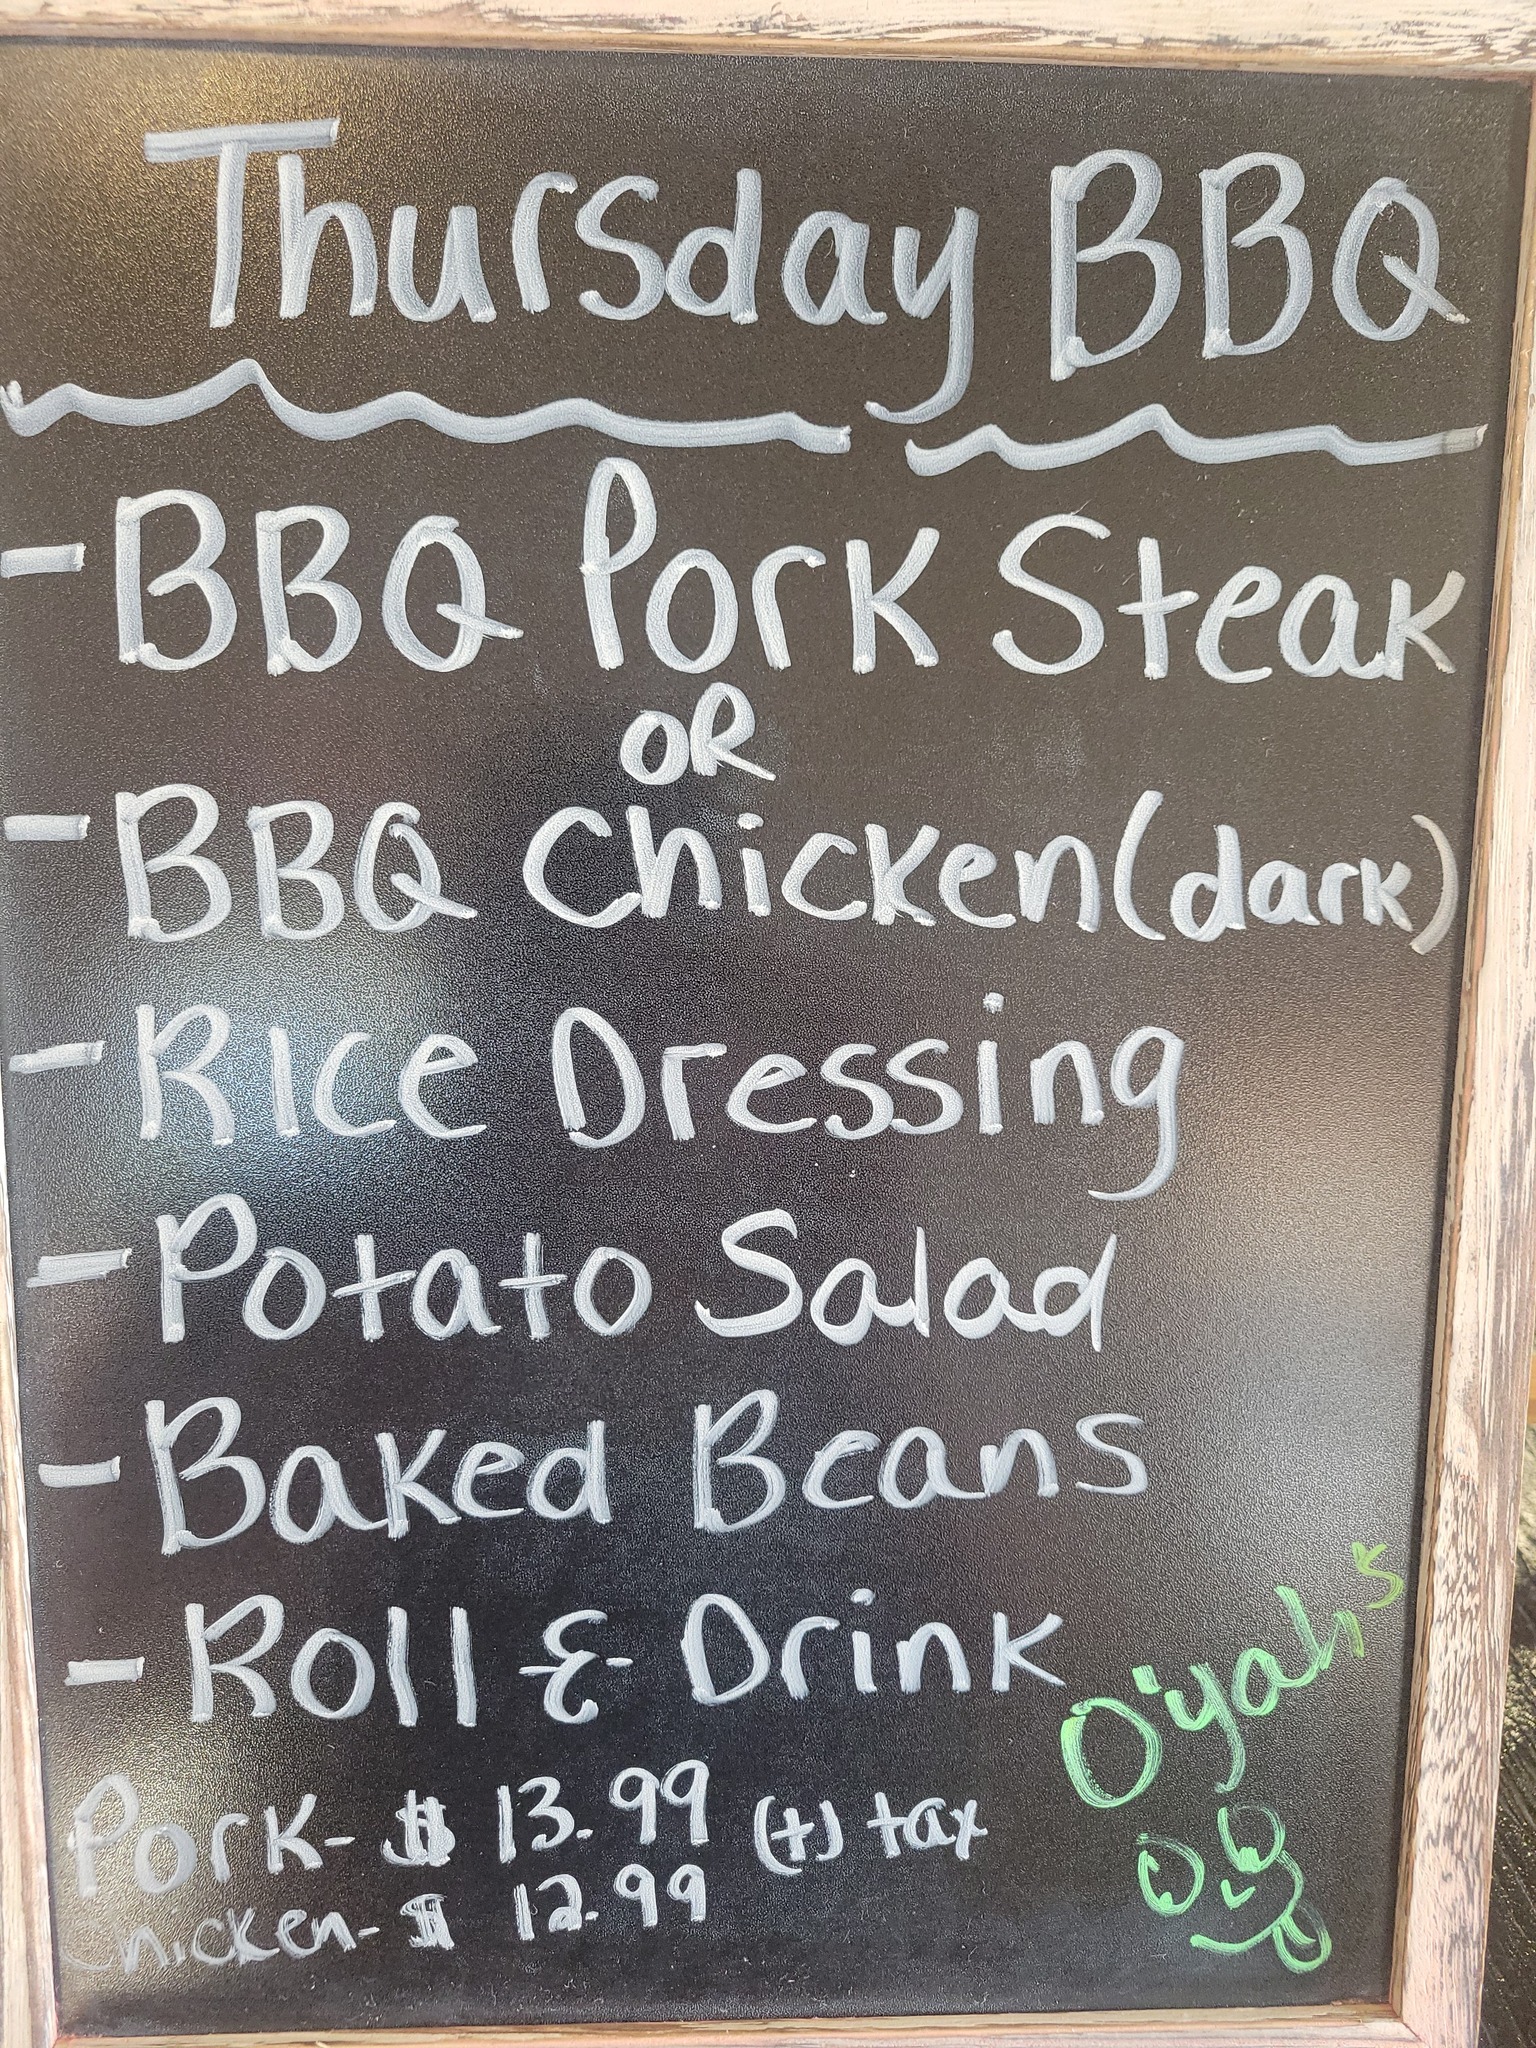 Thursday BBQ
- BBQ Pork Steak
OR
- BBQ Chicken (dark)
- Rice Dressing
- Potato Salad
- Baked Beans
- Roll & Drink
O'yah's
Pork- $ 13.99 (+) tax
Chicken- $ 12.99